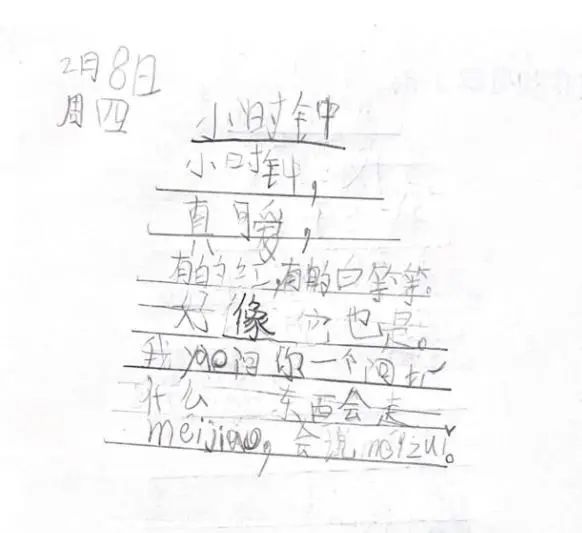 2月8日
周四
小时钟
小时钟,
真可爱,
有的红,有的白等等。
好像它也是。
我yao问你一个问
什么 东西会走
meijiao,会说meizui。